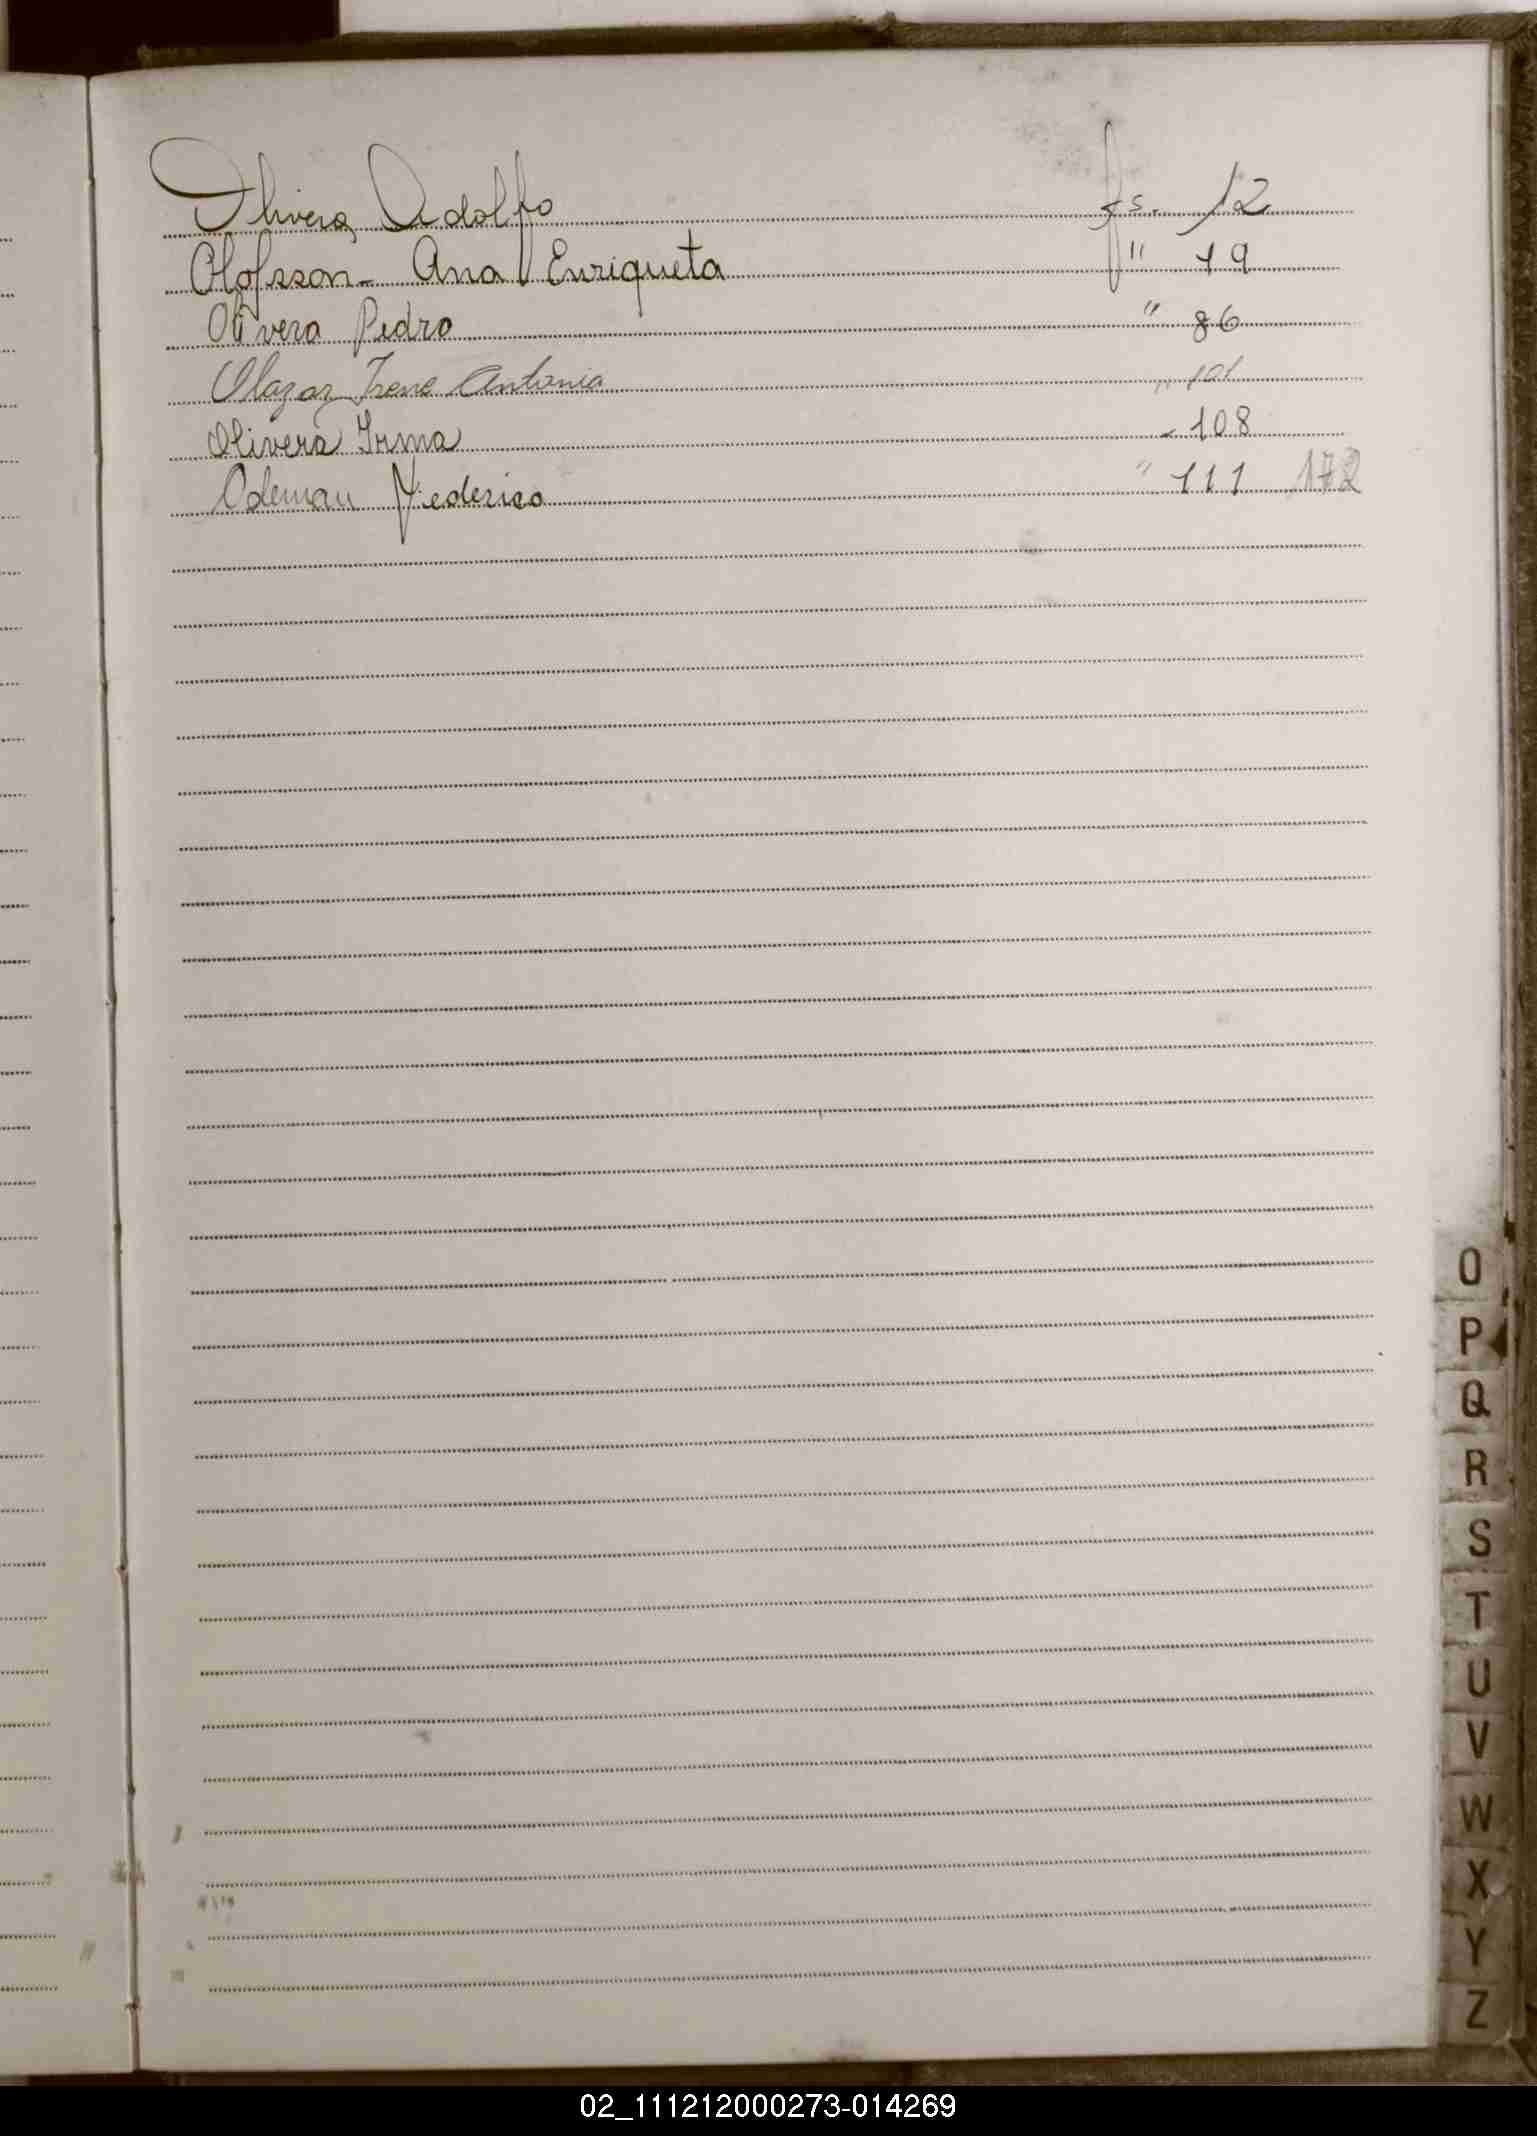 Olivera Adolfo fs. 12
Olofsson- Ana Enriqueta " 19
Olivera Pedro " 86
Olazar Irene Antonia " 101
Olivera Irma " 108
Odeman Federico " 111 172
O
P
Q
R
S
T
U
V
W
X
Y
Z
02_111212000273-014269